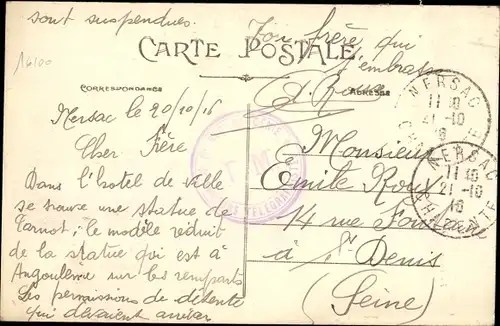 sont suspendues. Ton frère qui
t'embrasse
16100
CARTE POSTALE
CORRESPONDANCE
ADRESSE
Nersac le 20/10/16
Cher Frère
Dans l'hotel de ville
se trouve une statue de
Tarnot; le modèle réduit
de la statue qui est à
Angoulême sur les remparts
Les permissions de détente
qui devaient arriver
Monsieur
Emile Roux
14 rue Fontaine
à St Denis
(Seine)
NERSAC
11 10
21-10
16
CHARENTE
NERSAC
11 10
21-10
16
CHARENTE
T M